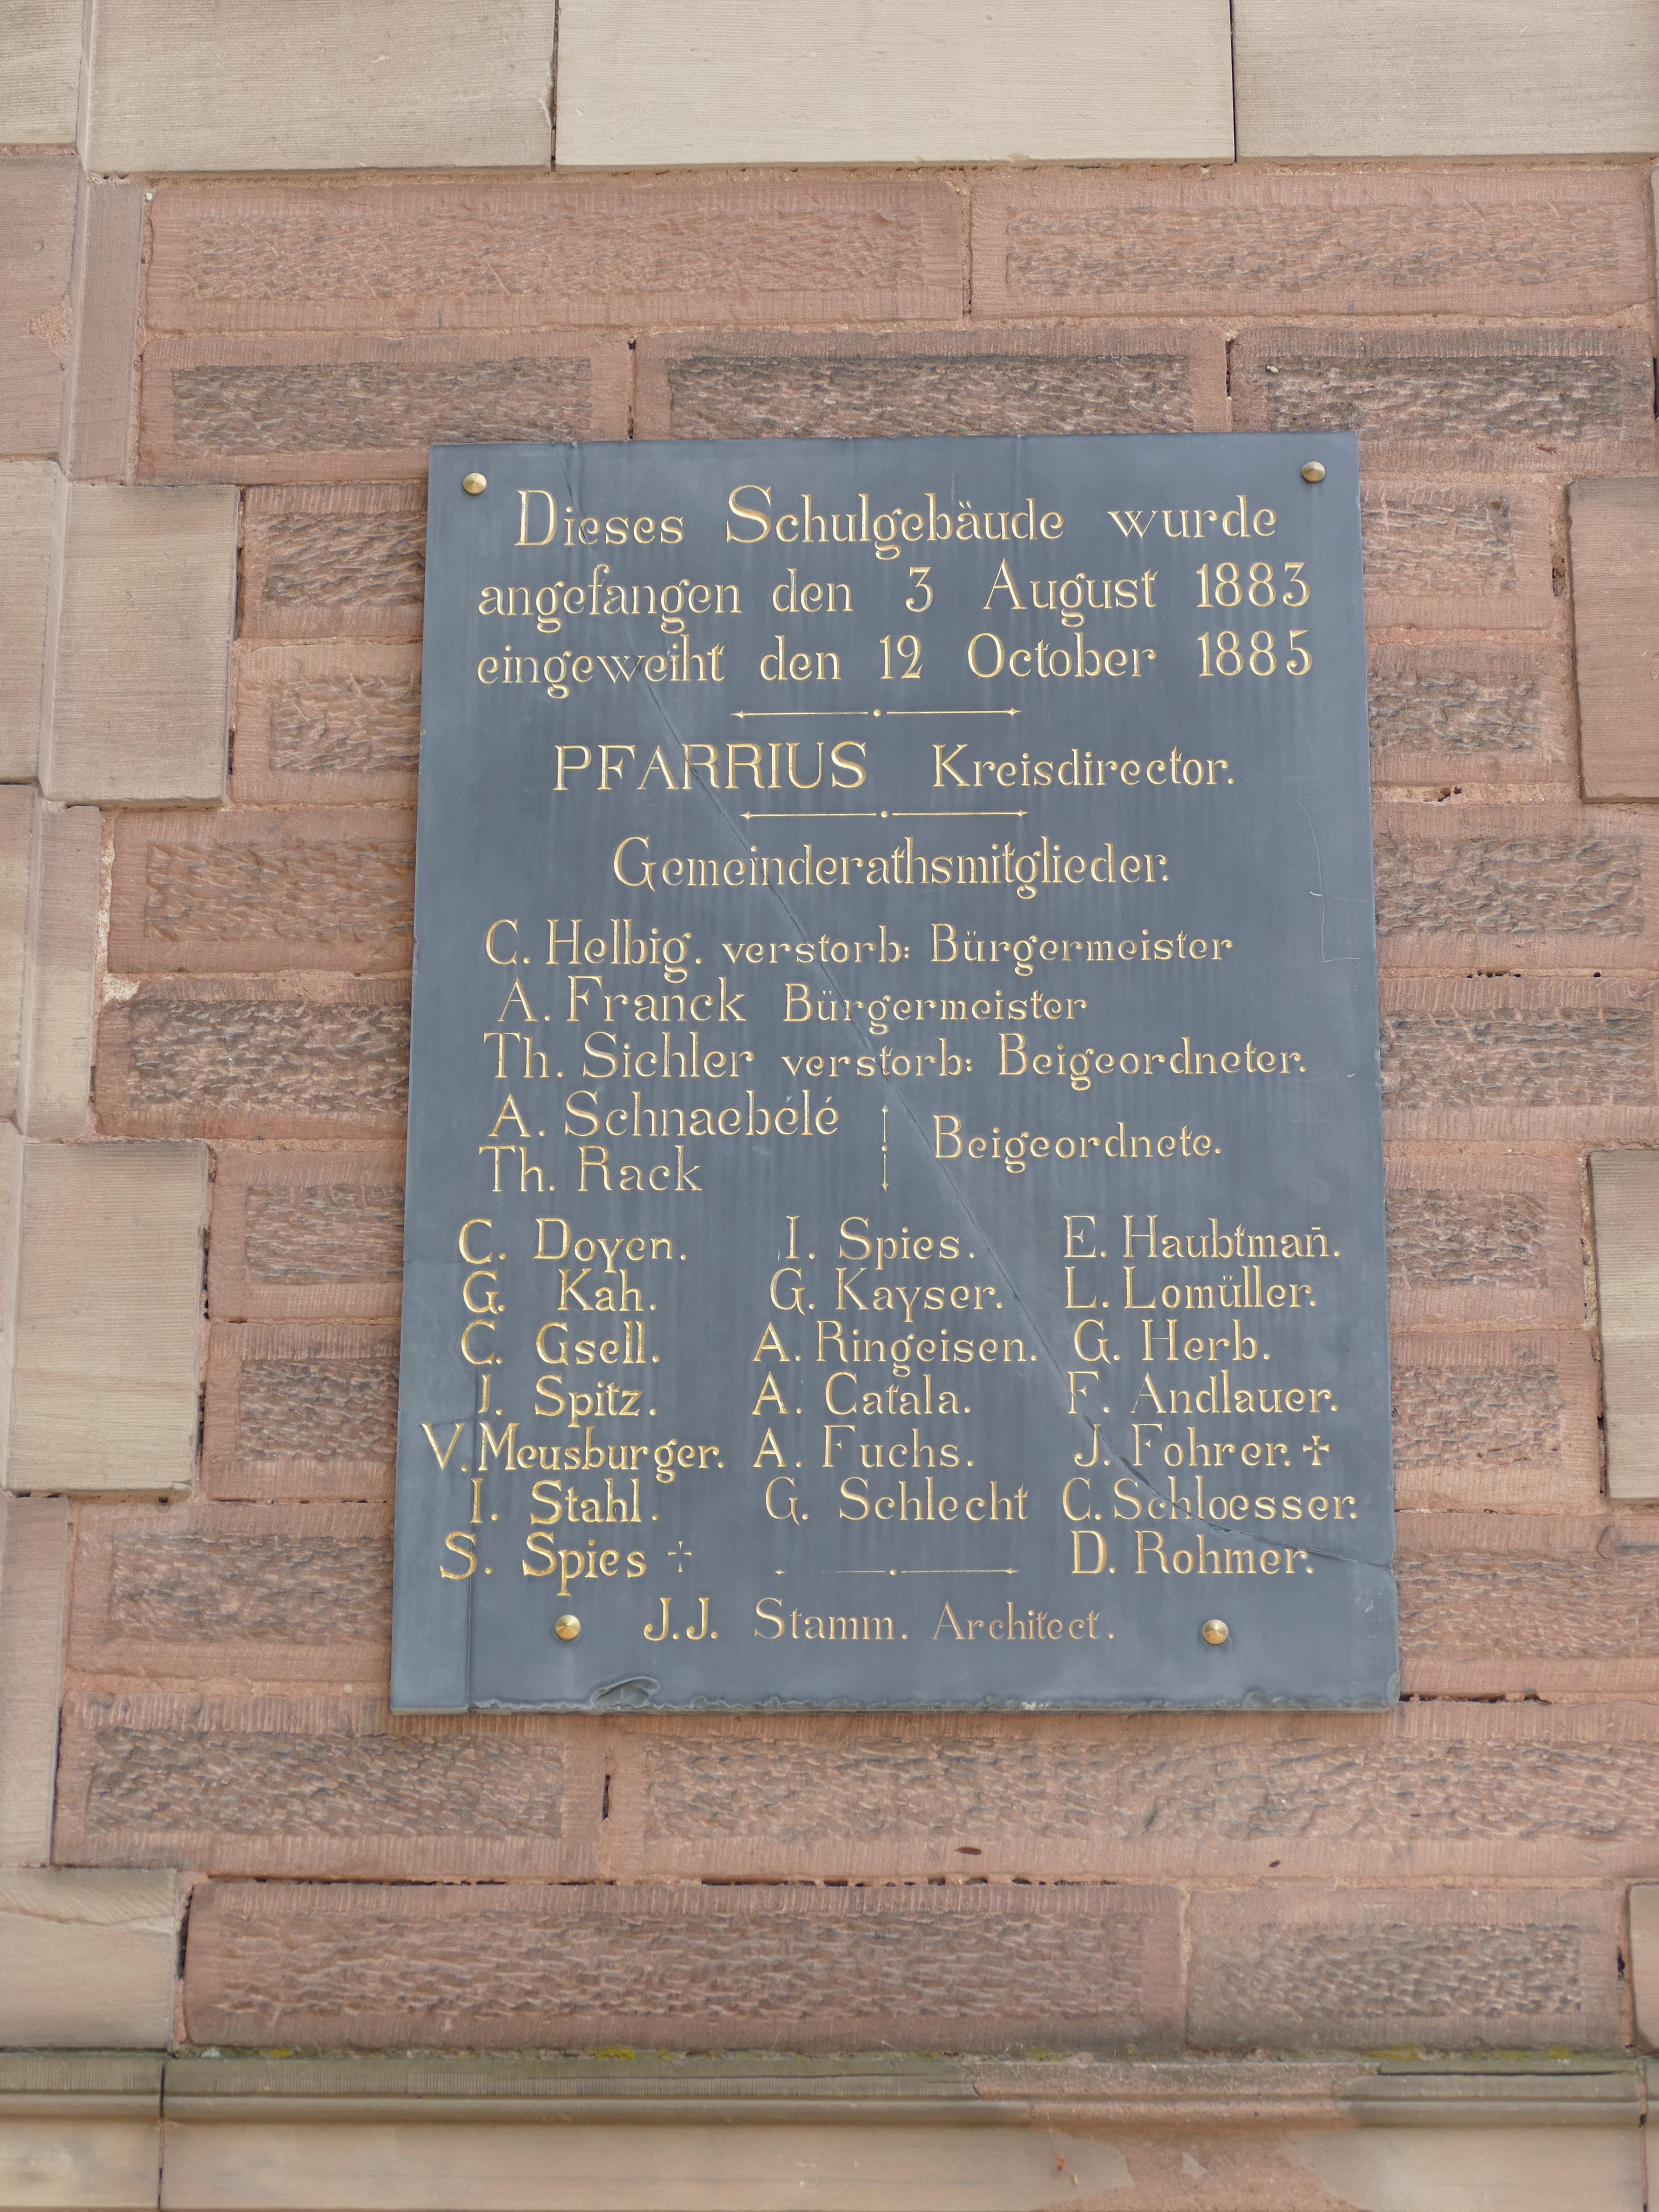 Dieses Schulgebäude wurde
angefangen den 3 August 1883
eingeweiht den 12 October 1885
PFARRIUS Kreisdirector.
Gemeinderathsmitglieder.
C. Helbig. verstorb: Bürgermeister
A. Franck Bürgermeister
Th. Sichler verstorb: Beigeordneter.
A. Schnaebélé
Th. Rack
Beigeordnete.
C. Doyen. I. Spies. E. Haubtman̄.
G. Kah. G. Kayser. L. Lomüller.
C. Gsell. A. Ringeisen. G. Herb.
J. Spitz. A. Catala. F. Andlauer.
V. Meusburger. A. Fuchs. J. Fohrer. ✝
I. Stahl. G. Schlecht C. Schloesser.
S. Spies ✝ D. Rohmer.
J.J. Stamm. Architect.